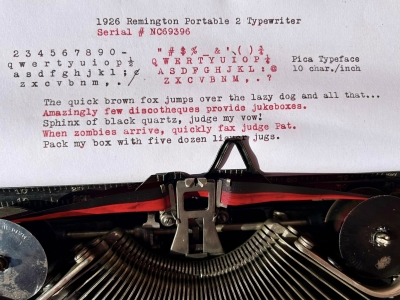 1926 Remington Portable 2 Typewriter
Serial # NC69396
2 3 4 5 6 7 8 9 0 -
" # $ % _ & ' ( ) ¾
q w e r t y u i o p ½
Q W E R T Y U I O P ¼
Pica Typeface
a s d f g h j k l ; ¢
A S D F G H J K L : @
10 char./inch
z x c v b n m , . /
Z X C V B N M , . ?
The quick brown fox jumps over the lazy dog and all that...
Amazingly few discotheques provide jukeboxes.
Sphinx of black quartz, judge my vow!
When zombies arrive, quickly fax judge Pat.
Pack my box with five dozen liquor jugs.